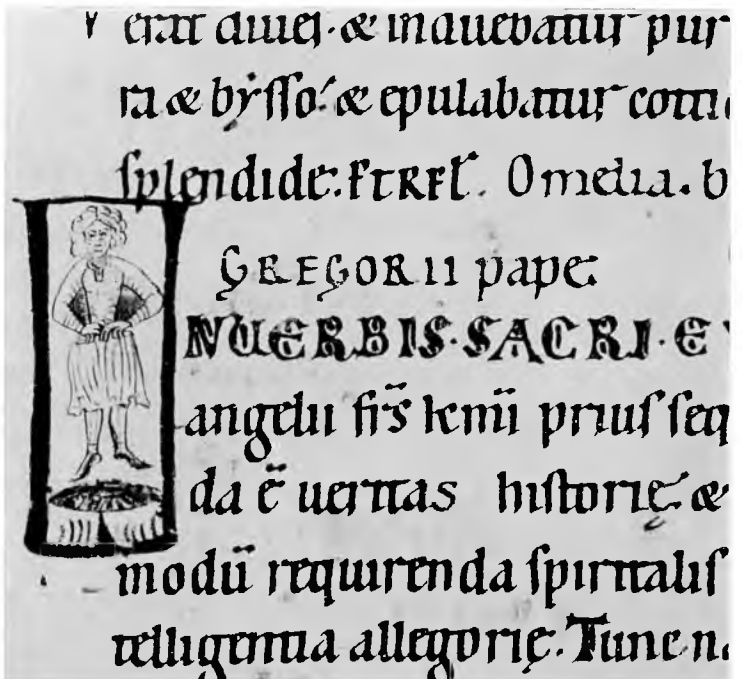 erat diues. & induebatur pur
ra & bẏsso. & epulabatur
splendide. ET REL. Omelia. b
GREGORII pape.
IN UERBIS. SACRI. E
angelii fr̄s kmī prius seq
da ē ueritas historię. &
modū requirenda spiritalis
telligentia allegorię. Tunc n